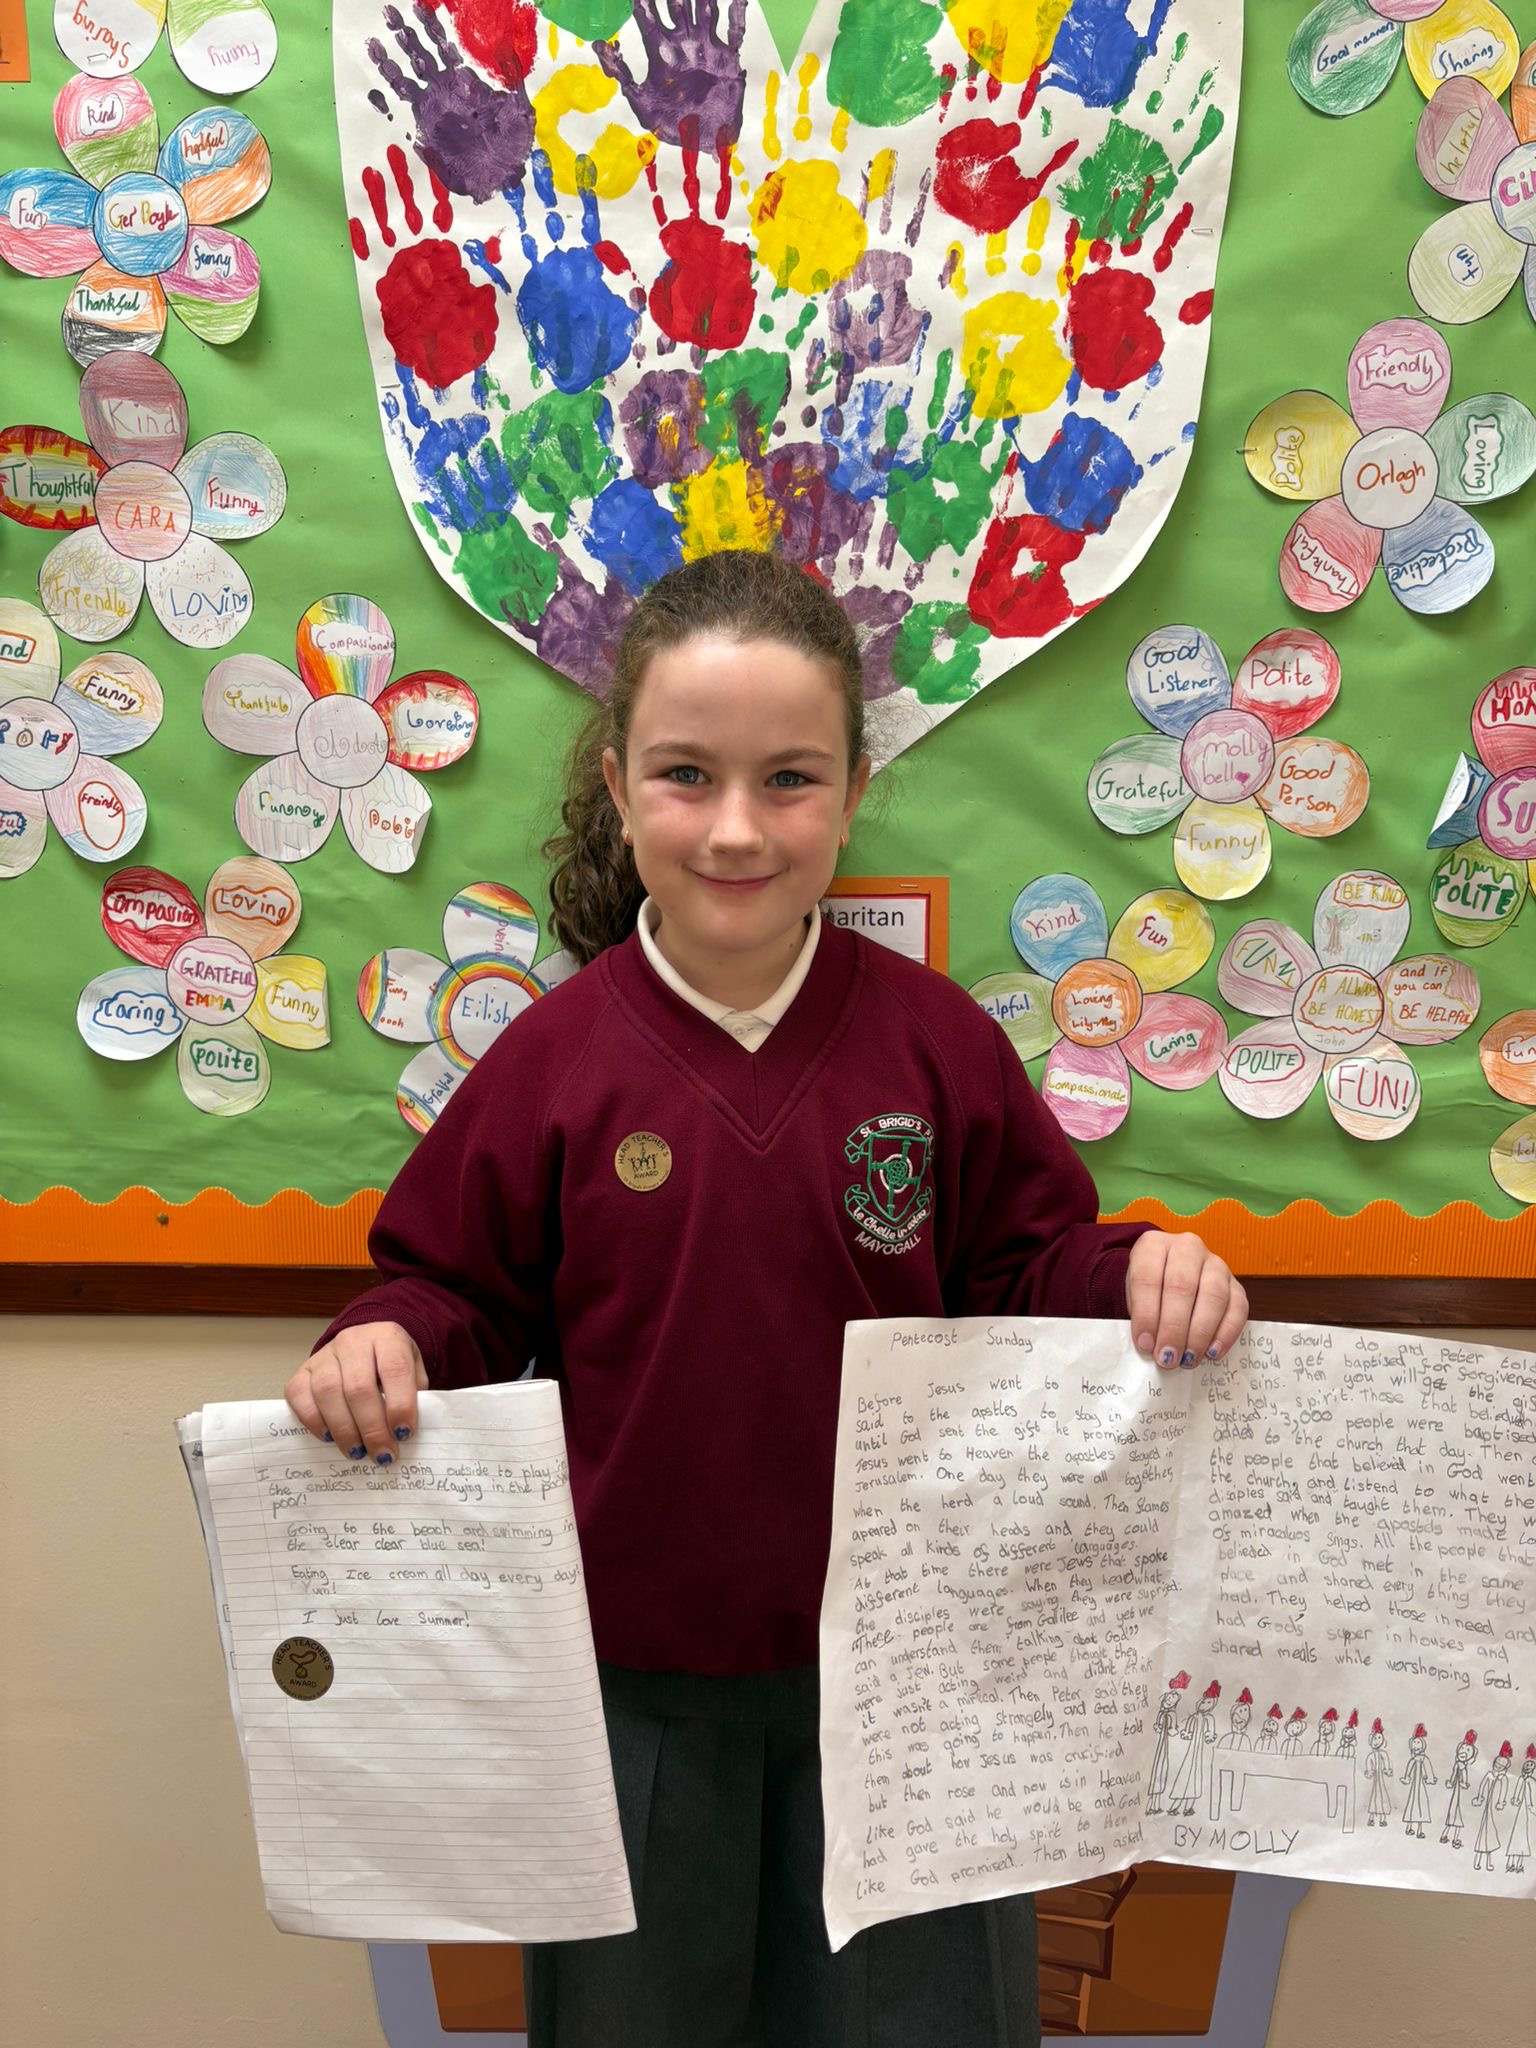 Sharing
funny
Kind
helpful
Fun
Ger Boyle
funny
Thankful
Kind
Thoughtful
CARA
Funny
Friendly
Loving
Compassionate
Thankful
Loveing
Funny
Freindly
Compassion
LOVING
GRATEFUL
EMMA
Funny
Caring
Polite
Loveing
Funny
Eilish
Good manners
Sharing
helpful
fun
Friendly
Polite
Loving
Orlagh
Thankful
Protective
Good
Listener
Polite
Molly
bella
Grateful
Good
Person
Funny!
POLITE
Kind
Fun
elpful
Loving
Lily-May
Caring
Compassionate
BE KIND
FUNNY
A ALWAYS
BE HONEST
John
and if
you can
BE HELPFUL
POLITE
FUN!
aritan
HEAD TEACHER'S
AWARD
ST. BRIGID'S P.S.
MAYOGALL
Summ
I love Summer! going outside to play in
the endless sunshine! Playing in the
pool!
Going to the beach and swimming in
the clear clear blue sea!
Eating Ice cream all day every day!
Yum!
I just love Summer!
HEAD TEACHER'S
AWARD
Pentecost Sunday
Before Jesus went to Heaven he
said to the apstles to stay in Jerusalem
until God sent the gift he promised. So after
Jesus went to Heaven the apostles stayed in
Jerusalem. One day they were all together,
when the herd a loud sound. Then flames
apeared on their heads and they could
speak all kinds of different languages.
At that time there were Jews that spoke
different languages. When they heard what
the disciples were saying they were suprised.
"These people are from Galilee and yet we
can understand them talking about God"
said a Jew. But some people thought they
were just acting weird and didnt think
it wasn't a mirical. Then Peter said they
were not acting strangely and God said
this was going to happen. Then he told
them about how Jesus was crucified
but then rose and now is in Heaven
like God said he would be and God
had gave the holy spirt to them
like God promised. Then they asked
they should do and Peter told
they should get baptised for forgivenes
their sins. Then you will get the gif
the holy spirit. Those that believed
baptised. 3,000 people were baptised
added to the church that day. Then
the people that believed in God went
the church and listend to what the
disciples said and taught them. They w
amazed when the apostels made lo
of miraculous sings. All the people that
belieded in God met in the same
place and shared every thing they
had. They helped those in need and
had God's super in houses and
shared meals while worshoping God.
BY MOLLY